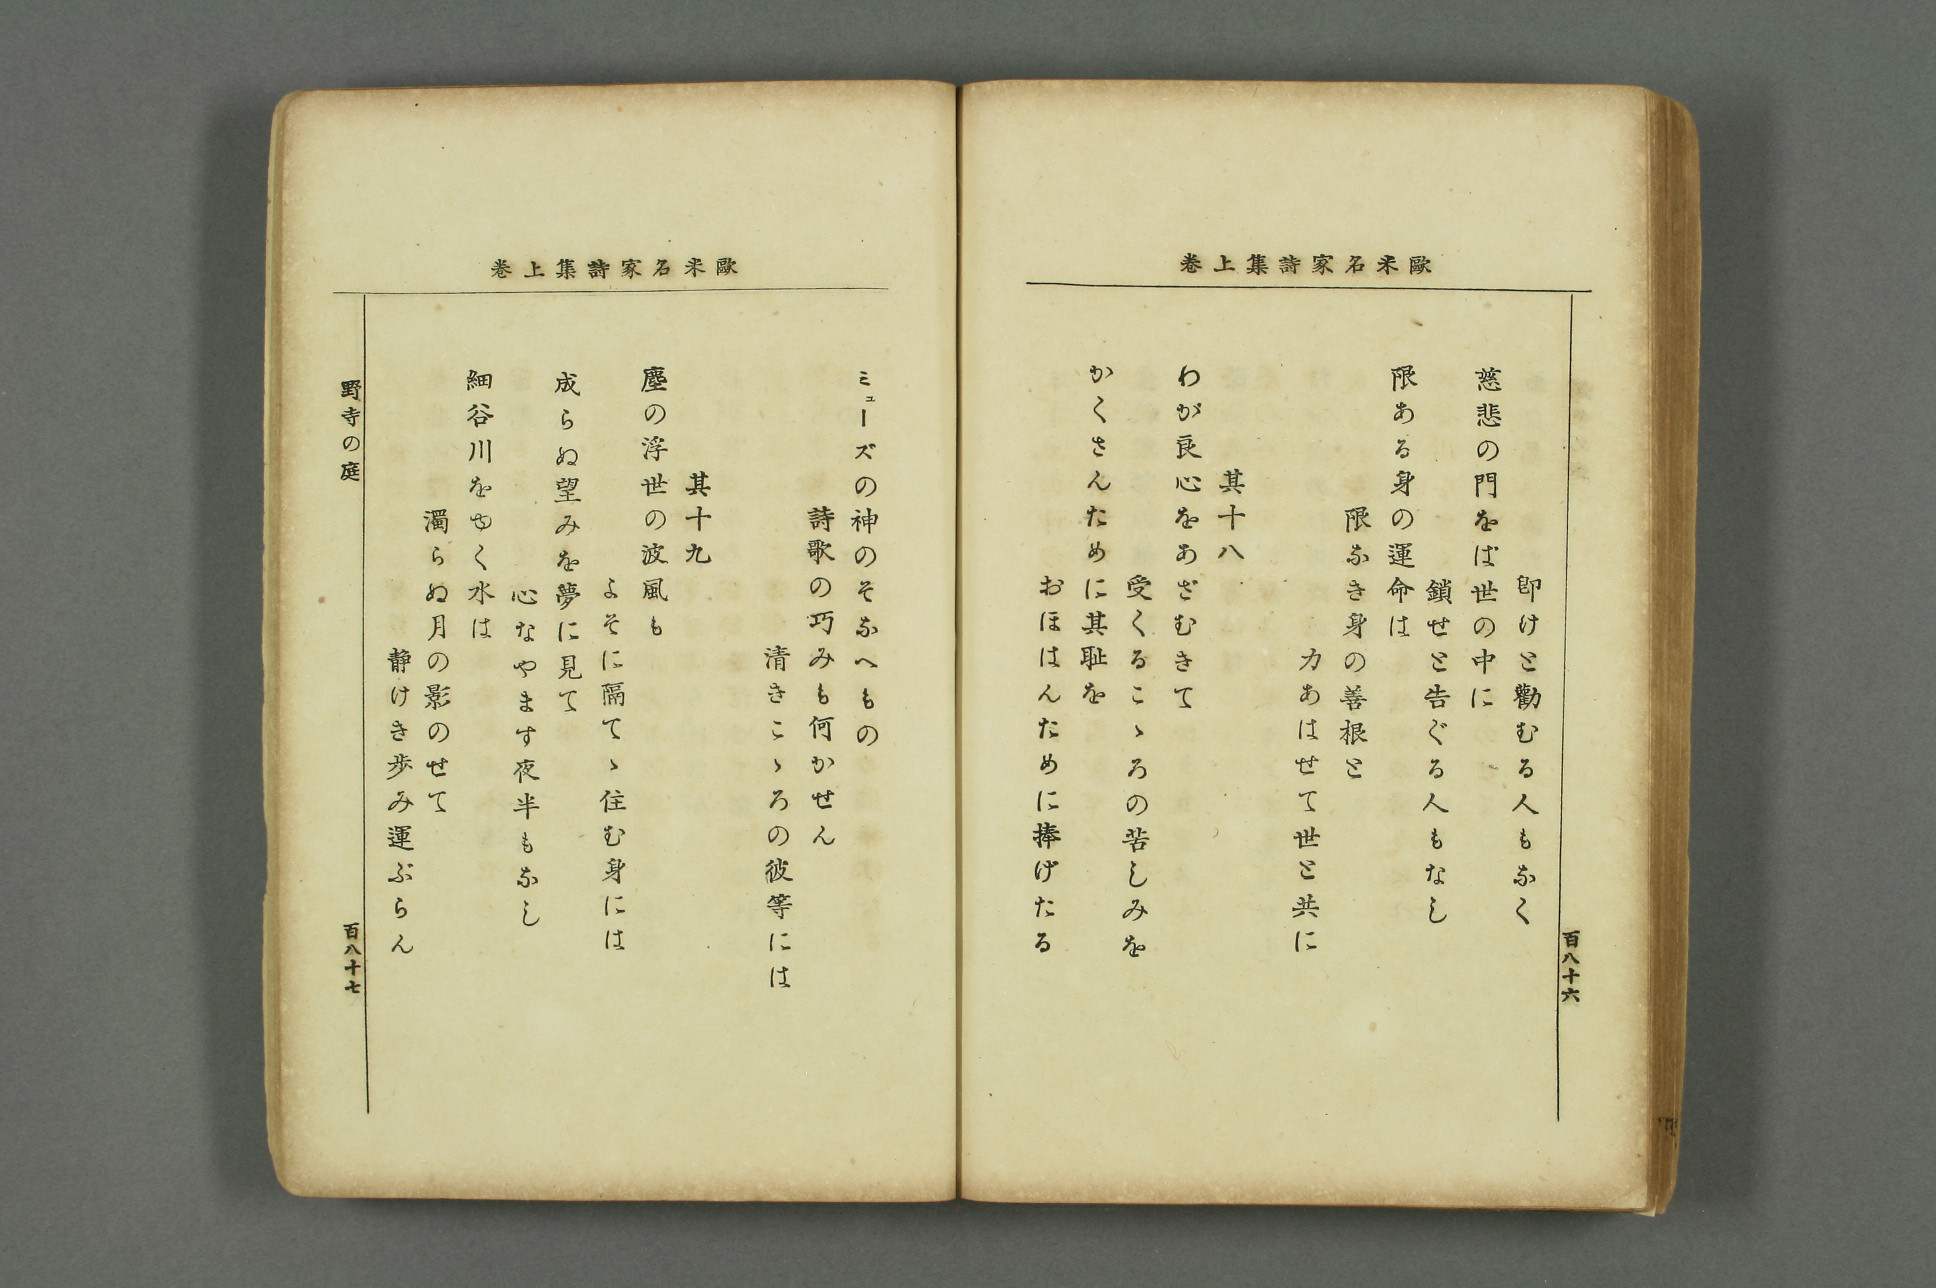 歐米名家詩集上巻
卽けと勸むる人もなく
慈悲の門をば世の中に
鎖せと告ぐる人もなし
限ある身の運命は
限なき身の善根と
力あはせて世と共に
其十八
わが良心をあざむきて
受くるこゝろの苦しみを
かくさんために其耻を
おほはんために捧げたる
百八十六
歐米名家詩集上巻
ミューズの神のそなへもの
詩歌の巧みも何かせん
清きこゝろの彼等には
其十九
塵の浮世の波風も
よそに隔てゝ住む身には
成らぬ望みを夢に見て
心なやます夜半もなし
細谷川をゆく水は
濁らぬ月の影のせて
静けき歩み運ぶらん
野寺の庭
百八十七